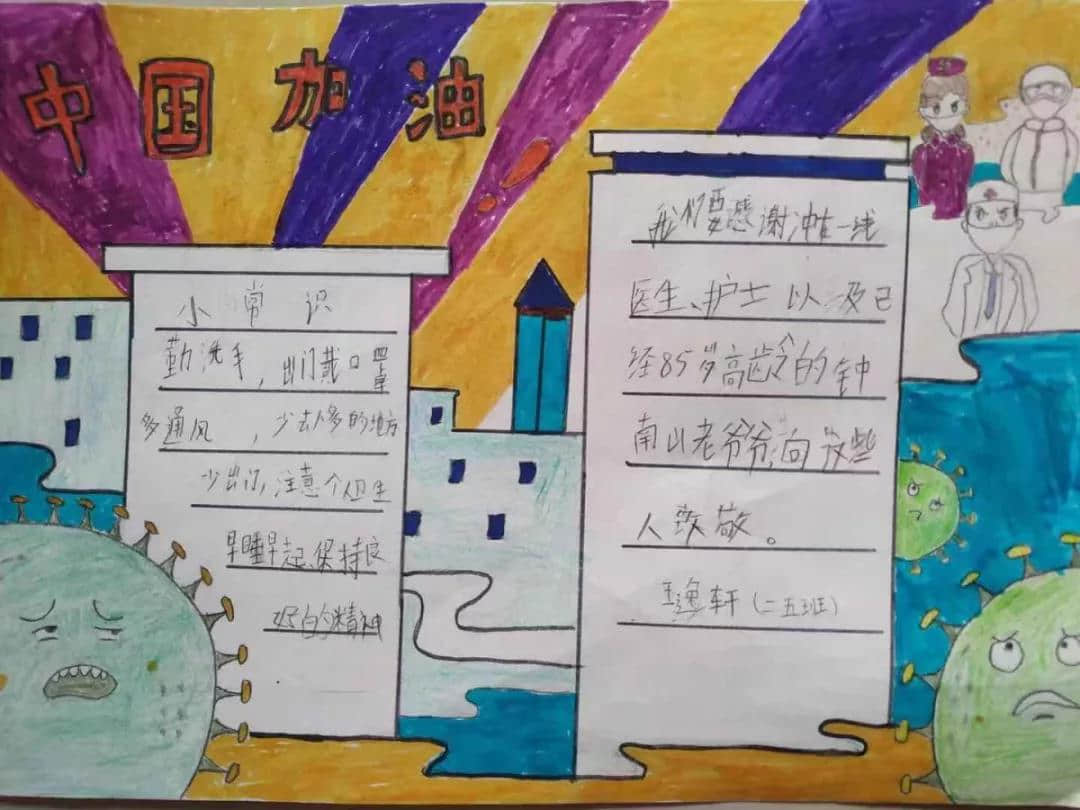 中国加油!
小常识
勤洗手，出门戴口罩
多通风，少去人多的地方
少出门，注意个人卫生
早睡早起、保持良
好的精神
我们要感谢冲在一线
医生、护士以及已
经85岁高龄的钟
南山老爷爷，向这些
人致敬。
王逸轩（二五班）